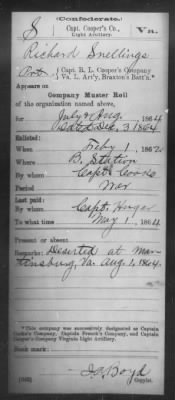 (Confederate.)
S Capt. Cooper's Co., Va.
Light Artillery.
Richard Snellings
Pvt., Capt. R. L. Cooper's Company
Va. L. Art'y, Braxton's Batt'n.*
Appears on
Company Muster Roll
of the organization named above,
for July & Aug., 1864
Dated Dec. 3, 1864
Enlisted:
When Feby 1, 1862
Where B. Station
By whom Capt. Cooke
Period War
Last paid:
By whom Capt. Huger
To what time May 1, 1864
Present or absent
Remarks: Deserted at Mar-
tinsburg, Va. Aug. 1, 1864.
*This company was successively designated as Captain
Cooke's Company, Captain French's Company, and Captain
Cooper's Company Virginia Light Artillery.
Book mark:
Boyd
Copyist.